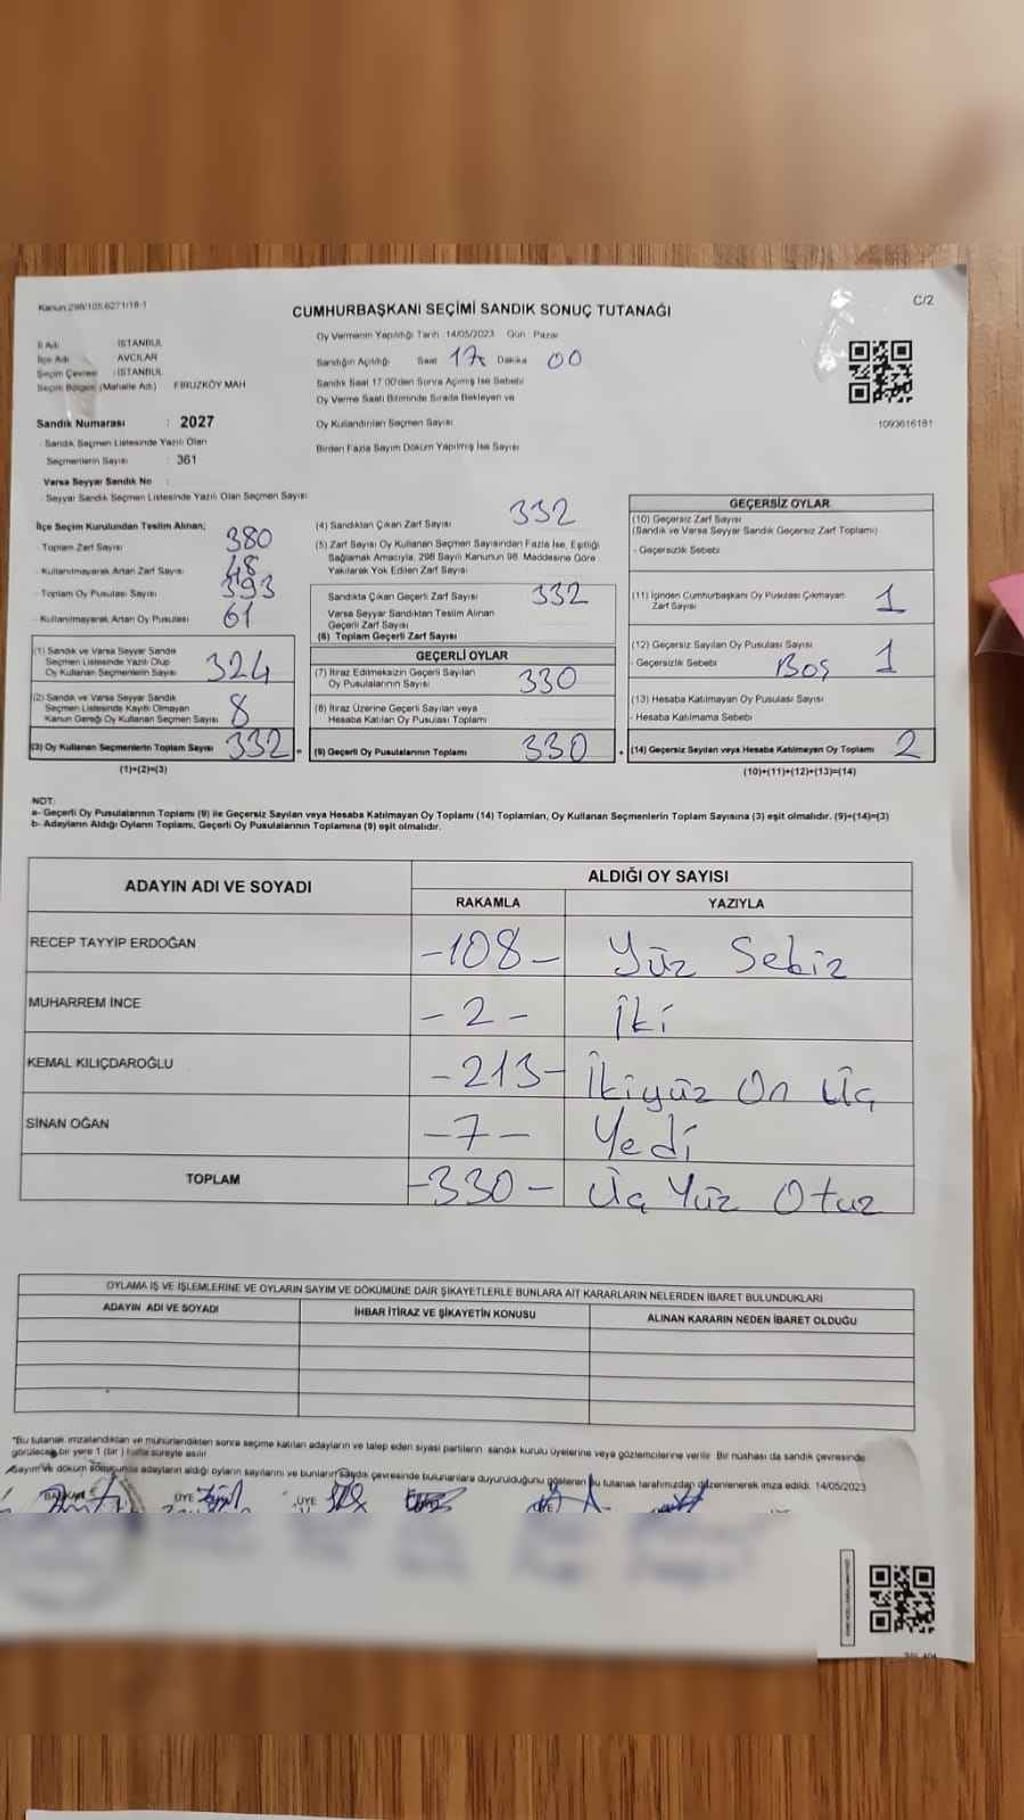 Kanun:298/105,6271/18-1
CUMHURBAŞKANI SEÇİMİ SANDIK SONUÇ TUTANAĞI
C/2
İl Adı : İSTANBUL
İlçe Adı : AVCILAR
Seçim Çevresi : İSTANBUL
Seçim Bölgesi (Mahalle Adı) : FİRUZKÖY MAH
Oy Vermenin Yapıldığı Tarih : 14/05/2023 Gün : Pazar
Sandığın Açıldığı Saat 17: Dakika 00
Sandık Saat 17.00'den Sonra Açılmış İse Sebebi
Oy Verme Saati Bitiminde Sırada Bekleyen ve
Oy Kullandırılan Seçmen Sayısı
Birden Fazla Sayım Döküm Yapılmış İse Sayısı
1093616181
Sandık Numarası : 2027
Sandık Seçmen Listesinde Yazılı Olan
Seçmenlerin Sayısı : 361
Varsa Seyyar Sandık No :
Seyyar Sandık Seçmen Listesinde Yazılı Olan Seçmen Sayısı
İlçe Seçim Kurulundan Teslim Alınan;
Toplam Zarf Sayısı 380
Kullanılmayarak Artan Zarf Sayısı 48
Toplam Oy Pusulası Sayısı 393
Kullanılmayarak Artan Oy Pusulası 61
(1) Sandık ve Varsa Seyyar Sandık
Seçmen Listesinde Yazılı Olup
Oy Kullanan Seçmenlerin Sayısı 324
(2) Sandık ve Varsa Seyyar Sandık
Seçmen Listesinde Kayıtlı Olmayan
Kanun Gereği Oy Kullanan Seçmen Sayısı 8
(3) Oy Kullanan Seçmenlerin Toplam Sayısı 332
(1)+(2)=(3)
(4) Sandıktan Çıkan Zarf Sayısı 332
(5) Zarf Sayısı Oy Kullanan Seçmen Sayısından Fazla İse, Eşitliği
Sağlamak Amacıyla, 298 Sayılı Kanunun 98. Maddesine Göre
Yakılarak Yok Edilen Zarf Sayısı
Sandıkta Çıkan Geçerli Zarf Sayısı 332
Varsa Seyyar Sandıktan Teslim Alınan
Geçerli Zarf Sayısı
(6) Toplam Geçerli Zarf Sayısı
GEÇERLİ OYLAR
(7) İtiraz Edilmeksizin Geçerli Sayılan
Oy Pusulalarının Sayısı 330
(8) İtiraz Üzerine Geçerli Sayılan veya
Hesaba Katılan Oy Pusulası Toplamı
= (9) Geçerli Oy Pusulalarının Toplamı 330
GEÇERSİZ OYLAR
(10) Geçersiz Zarf Sayısı
(Sandık ve Varsa Seyyar Sandık Geçersiz Zarf Toplamı)
- Geçersizlik Sebebi
(11) İçinden Cumhurbaşkanı Oy Pusulası Çıkmayan
Zarf Sayısı 1
(12) Geçersiz Sayılan Oy Pusulası Sayısı
- Geçersizlik Sebebi Boş 1
(13) Hesaba Katılmayan Oy Pusulası Sayısı
- Hesaba Katılmama Sebebi
+ (14) Geçersiz Sayılan veya Hesaba Katılmayan Oy Toplamı 2
(10)+(11)+(12)+(13)=(14)
NOT:
a- Geçerli Oy Pusulalarının Toplamı (9) ile Geçersiz Sayılan veya Hesaba Katılmayan Oy Toplamı (14) Toplamları, Oy Kullanan Seçmenlerin Toplam Sayısına (3) eşit olmalıdır. (9)+(14)=(3)
b- Adayların Aldığı Oyların Toplamı, Geçerli Oy Pusulalarının Toplamına (9) eşit olmalıdır.
ADAYIN ADI VE SOYADI
ALDIĞI OY SAYISI
RAKAMLA YAZIYLA
RECEP TAYYİP ERDOĞAN -108- Yüz Sekiz
MUHARREM İNCE -2- İki
KEMAL KILIÇDAROĞLU -213- İkiyüz On Üç
SİNAN OĞAN -7- Yedi
TOPLAM -330- Üç Yüz Otuz
OYLAMA İŞ VE İŞLEMLERİNE VE OYLARIN SAYIM VE DÖKÜMÜNE DAİR ŞİKAYETLERLE BUNLARA AİT KARARLARIN NELERDEN İBARET BULUNDUKLARI
ADAYIN ADI VE SOYADI İHBAR İTİRAZ VE ŞİKAYETİN KONUSU ALINAN KARARIN NEDEN İBARET OLDUĞU
*Bu tutanak imzalandıktan ve mühürlendikten sonra seçime katılan adayların ve talep eden siyasi partilerin sandık kurulu üyelerine veya gözlemcilerine verilir. Bir nüshası da sandık çevresinde
görülecek bir yere 1 (bir ) hafta süreyle asılır.
Sayım ve döküm sonucunda adayların aldığı oyların sayılarını ve bunların sandık çevresinde bulunanlara duyurulduğunu gösteren bu tutanak tarafımızdan düzenlenerek imza edildi. 14/05/2023
BAŞKAN ÜYE ÜYE ÜYE